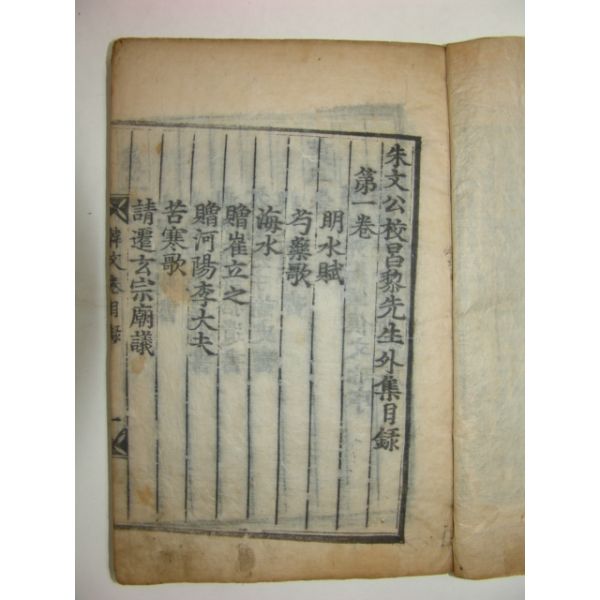 朱文公校昌黎先生外集目録
第一卷
明水賦
芍藥歌
海水
贈崔立之
贈河陽李大夫
苦寒歌
請遷玄宗廟議
韓文卷目録
一